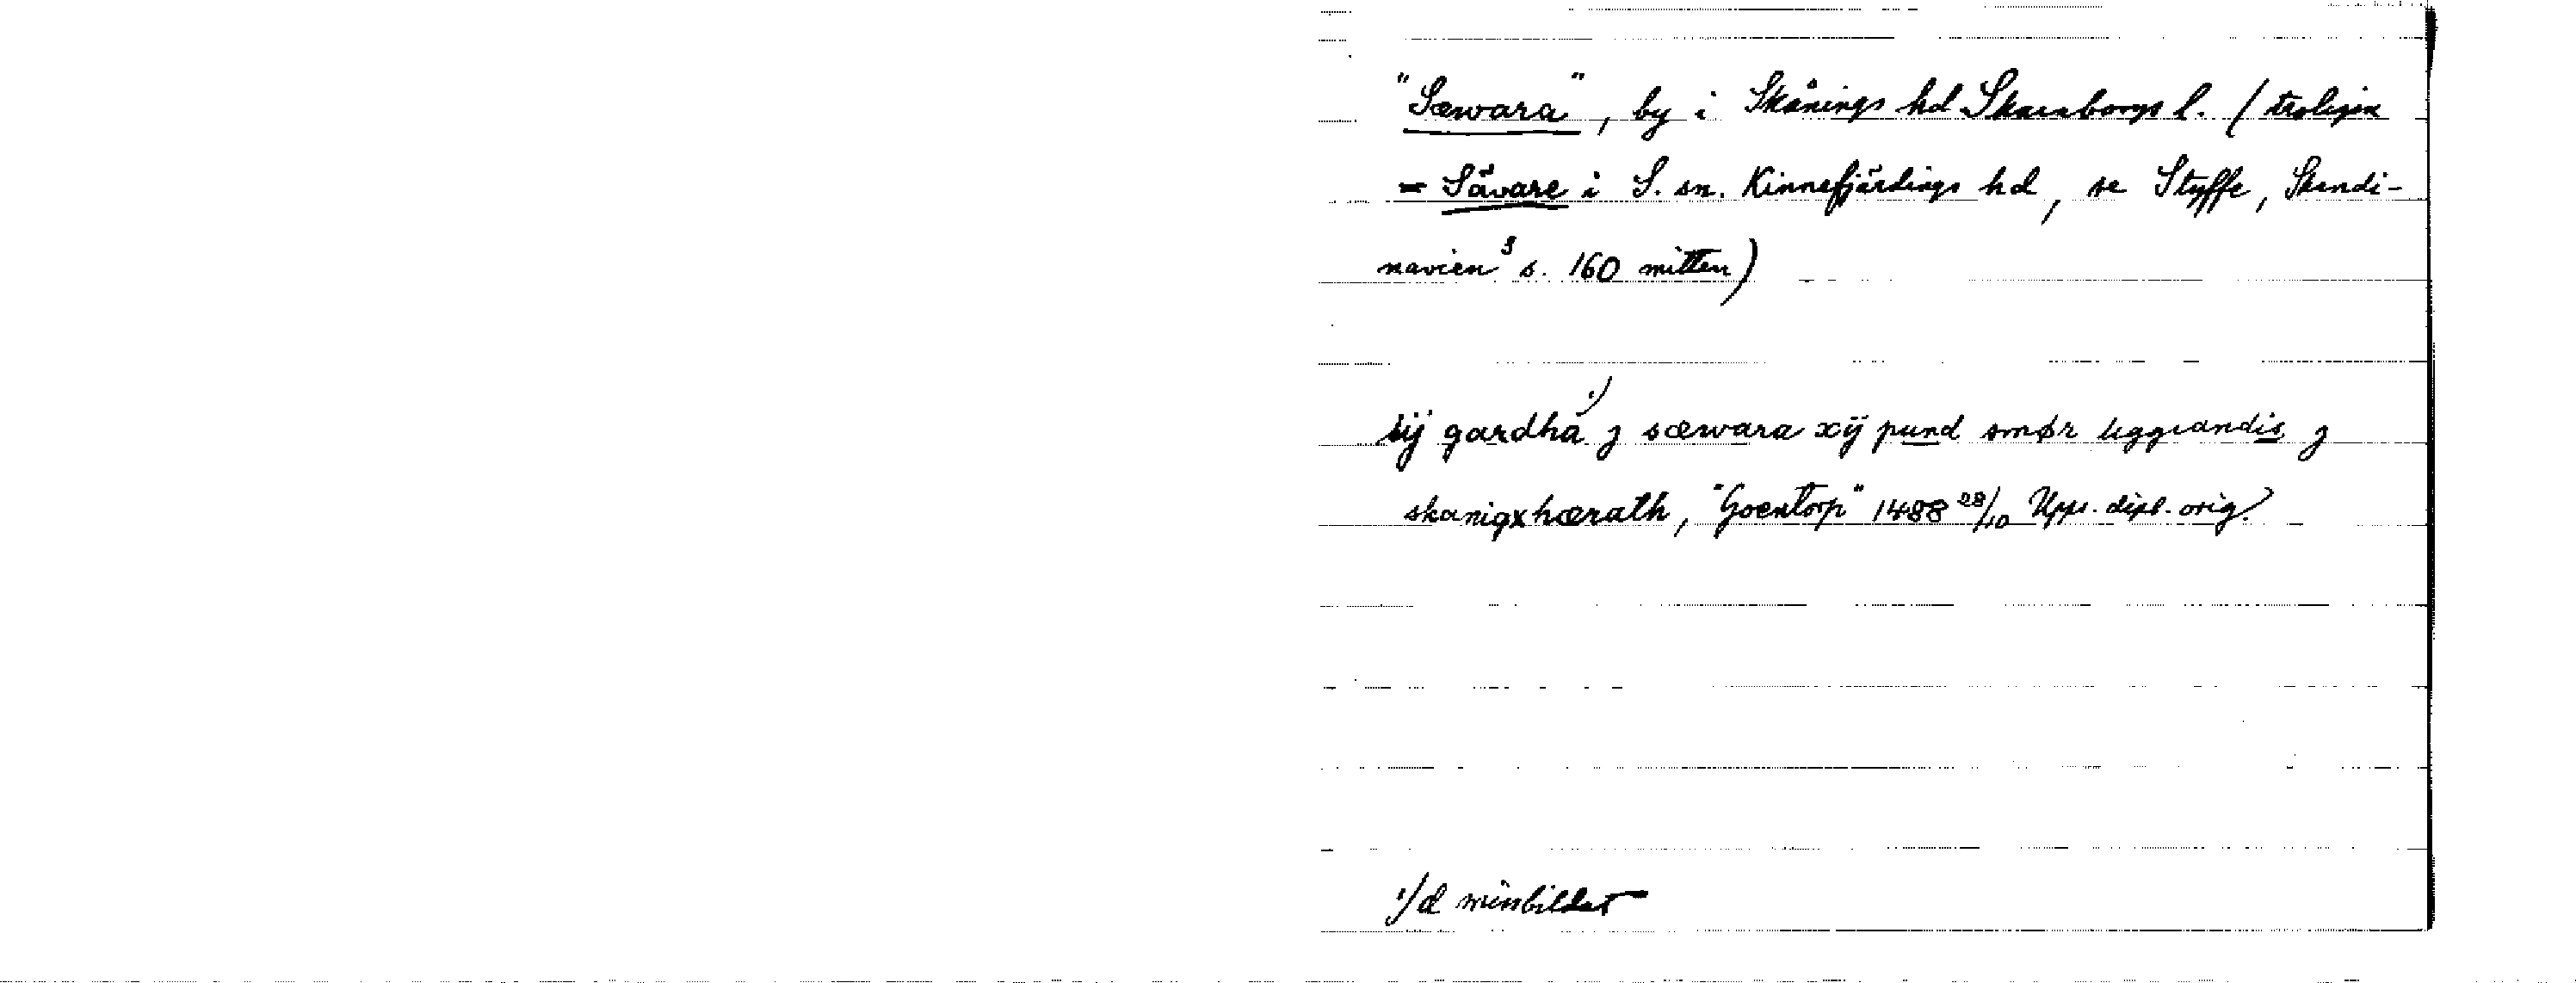 "Sæwara", by i Skånings hd Skaraborgs l. (troligen
= Sävare i S. sn. Kinnefjärdings hd, se Styffe, Skandi-
navien³ s. 160 mitten)
ij gardha ¹) j sæwara xij pund smør liggiandis j
skanigxhærath, "Goentorp" 1488 28/10 Upps. dipl. orig.
¹) d missbildat